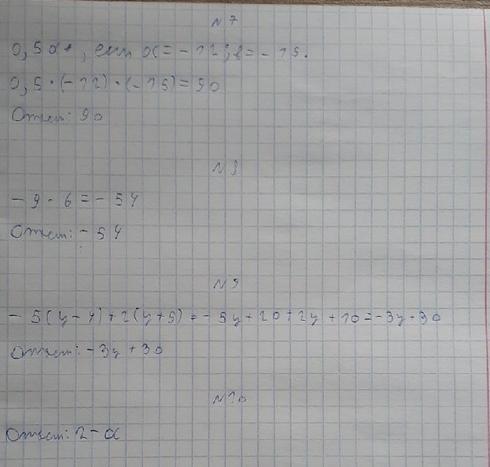 N 7
0,5ав, если а = -12; в = -15.
0,5 · (-12) · (-15) = 90
Ответ: 90
N 8
-9 · 6 = -54
Ответ: -54
N 9
-5(y-4)+2(y+5) = -5y+20+2y+10=-3y+30
Ответ: -3y+30
N 10
Ответ: 2-а